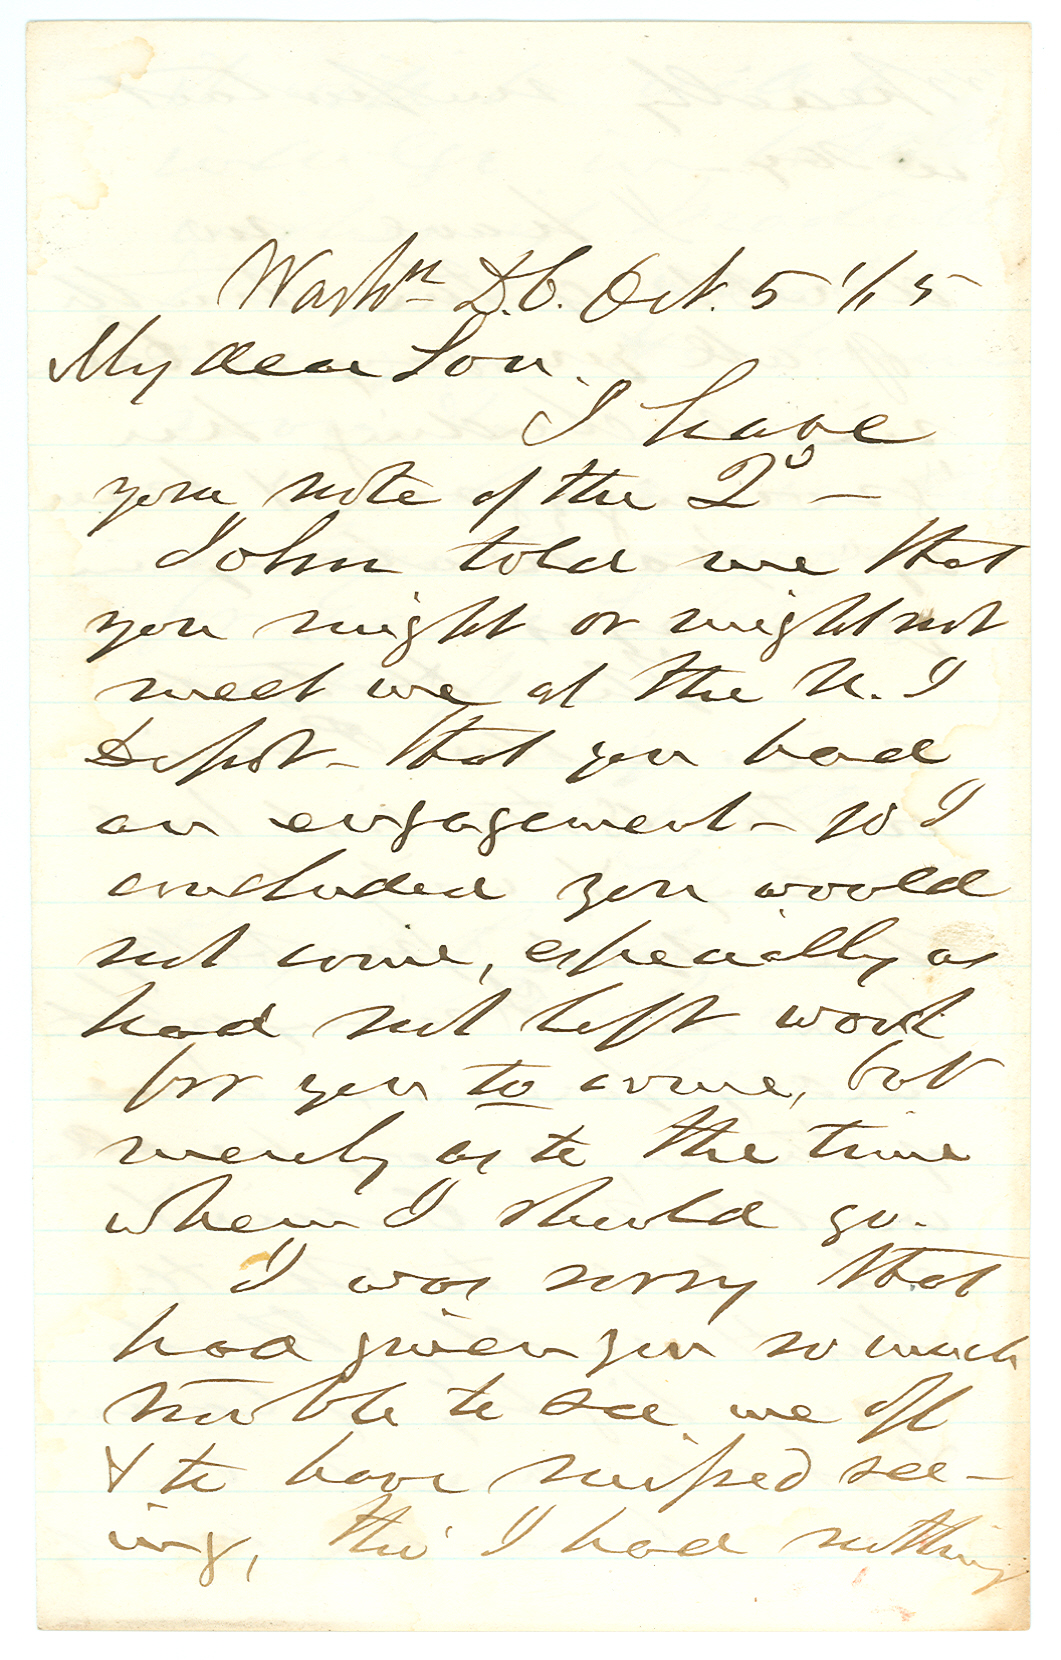 Washn D.C. Oct. 5 '/65
My dear Son.
I have
your note of the 2d —
John told me that
you might or might not
meet me at the N. J
Depot – that you had
an engagement – so I
concluded you would
not come, especially as
had not left word
for you to come, but
merely as to the time
when I should go.
I was sorry that
had given you so much
trouble to see me off
& to have missed see-
ing, tho' I had nothing